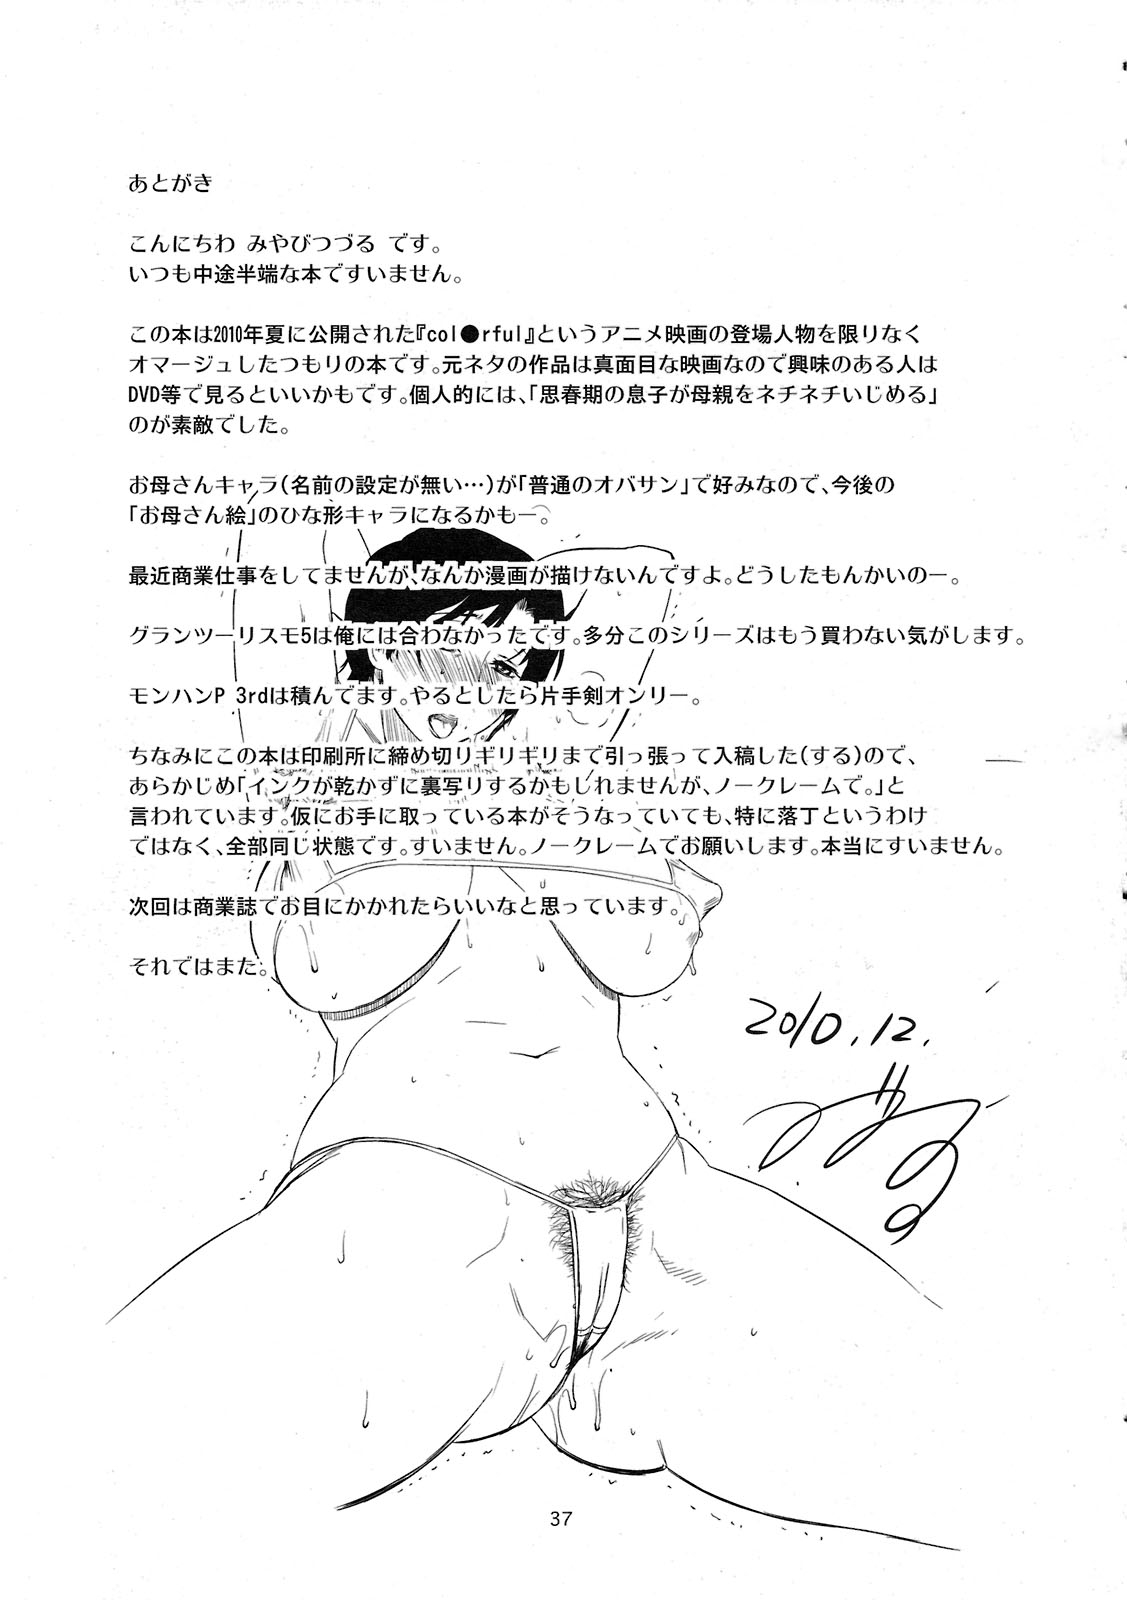 あとがき
こんにちわ みやびつづる です。
いつも中途半端な本ですいません。
この本は2010年夏に公開された『col●rful』というアニメ映画の登場人物を限りなく
オマージュしたつもりの本です。元ネタの作品は真面目な映画なので興味のある人は
DVD等で見るといいかもです。個人的には、「思春期の息子が母親をネチネチいじめる」
のが素敵でした。
お母さんキャラ(名前の設定が無い…)が「普通のオバサン」で好みなので、今後の
「お母さん絵」のひな形キャラになるかもー。
最近商業仕事をしてませんが、なんか漫画が描けないんですよ。どうしたもんかいのー。
グランツーリスモ5は俺には合わなかったです。多分このシリーズはもう買わない気がします。
モンハンP 3rdは積んでます。やるとしたら片手剣オンリー。
ちなみにこの本は印刷所に締め切りギリギリまで引っ張って入稿した(する)ので、
あらかじめ「インクが乾かずに裏写りするかもしれませんが、ノークレームで。」と
言われています。仮にお手に取っている本がそうなっていても、特に落丁というわけ
ではなく、全部同じ状態です。すいません。ノークレームでお願いします。本当にすいません。
次回は商業誌でお目にかかれたらいいなと思っています。
それではまた。
2010.12.
づづる
37